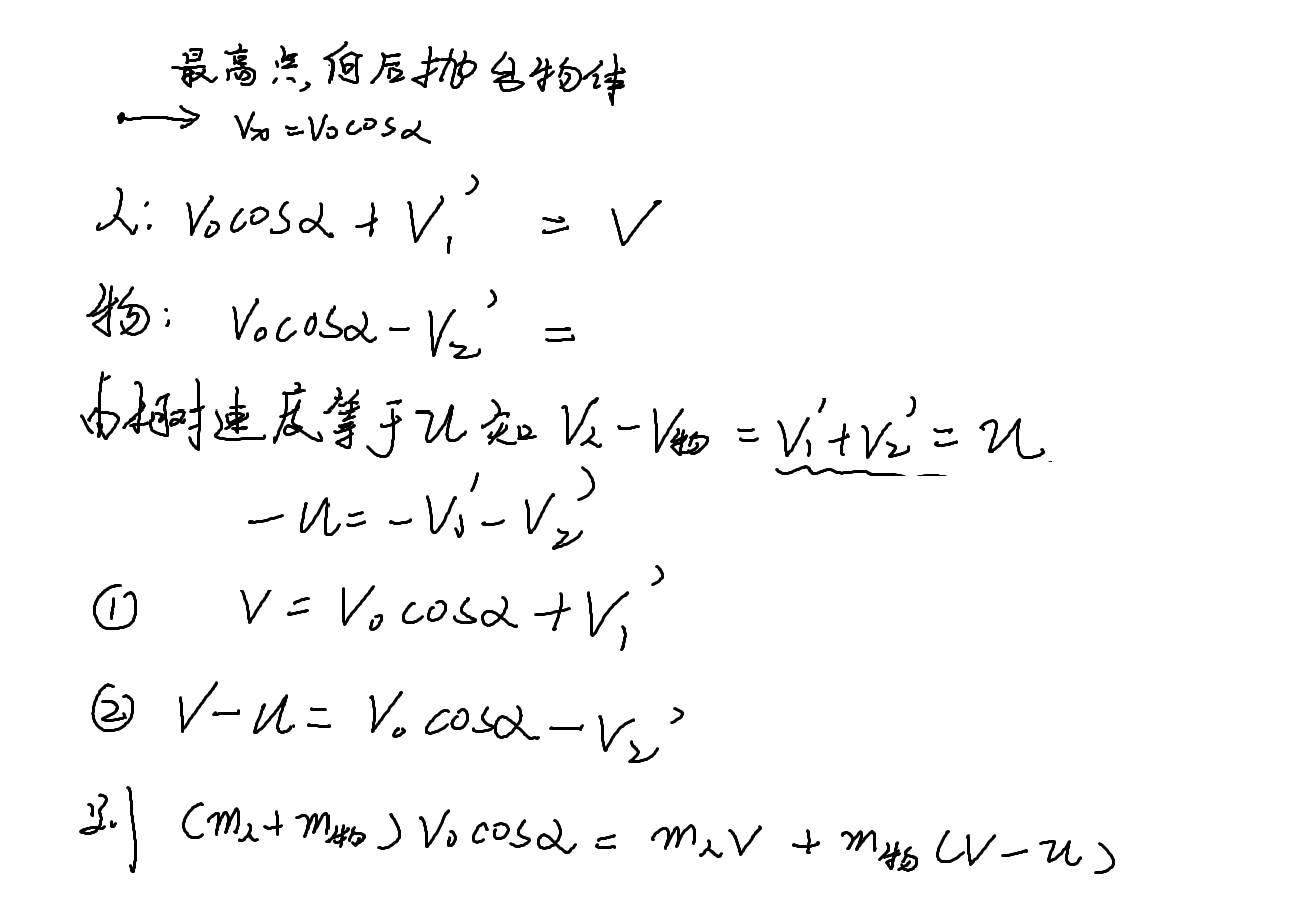 最高点,向后抛出物体
Vx₀ = V₀cosα
人: V₀cosα + V₁' = V
物: V₀cosα - V₂' =
由相对速度等于u知 V人 - V物 = V₁' + V₂' = u.
-u = -V₁' - V₂'
① V = V₀cosα + V₁'
② V - u = V₀cosα - V₂'
则 (m人 + m物) V₀cosα = m人V + m物(V - u)